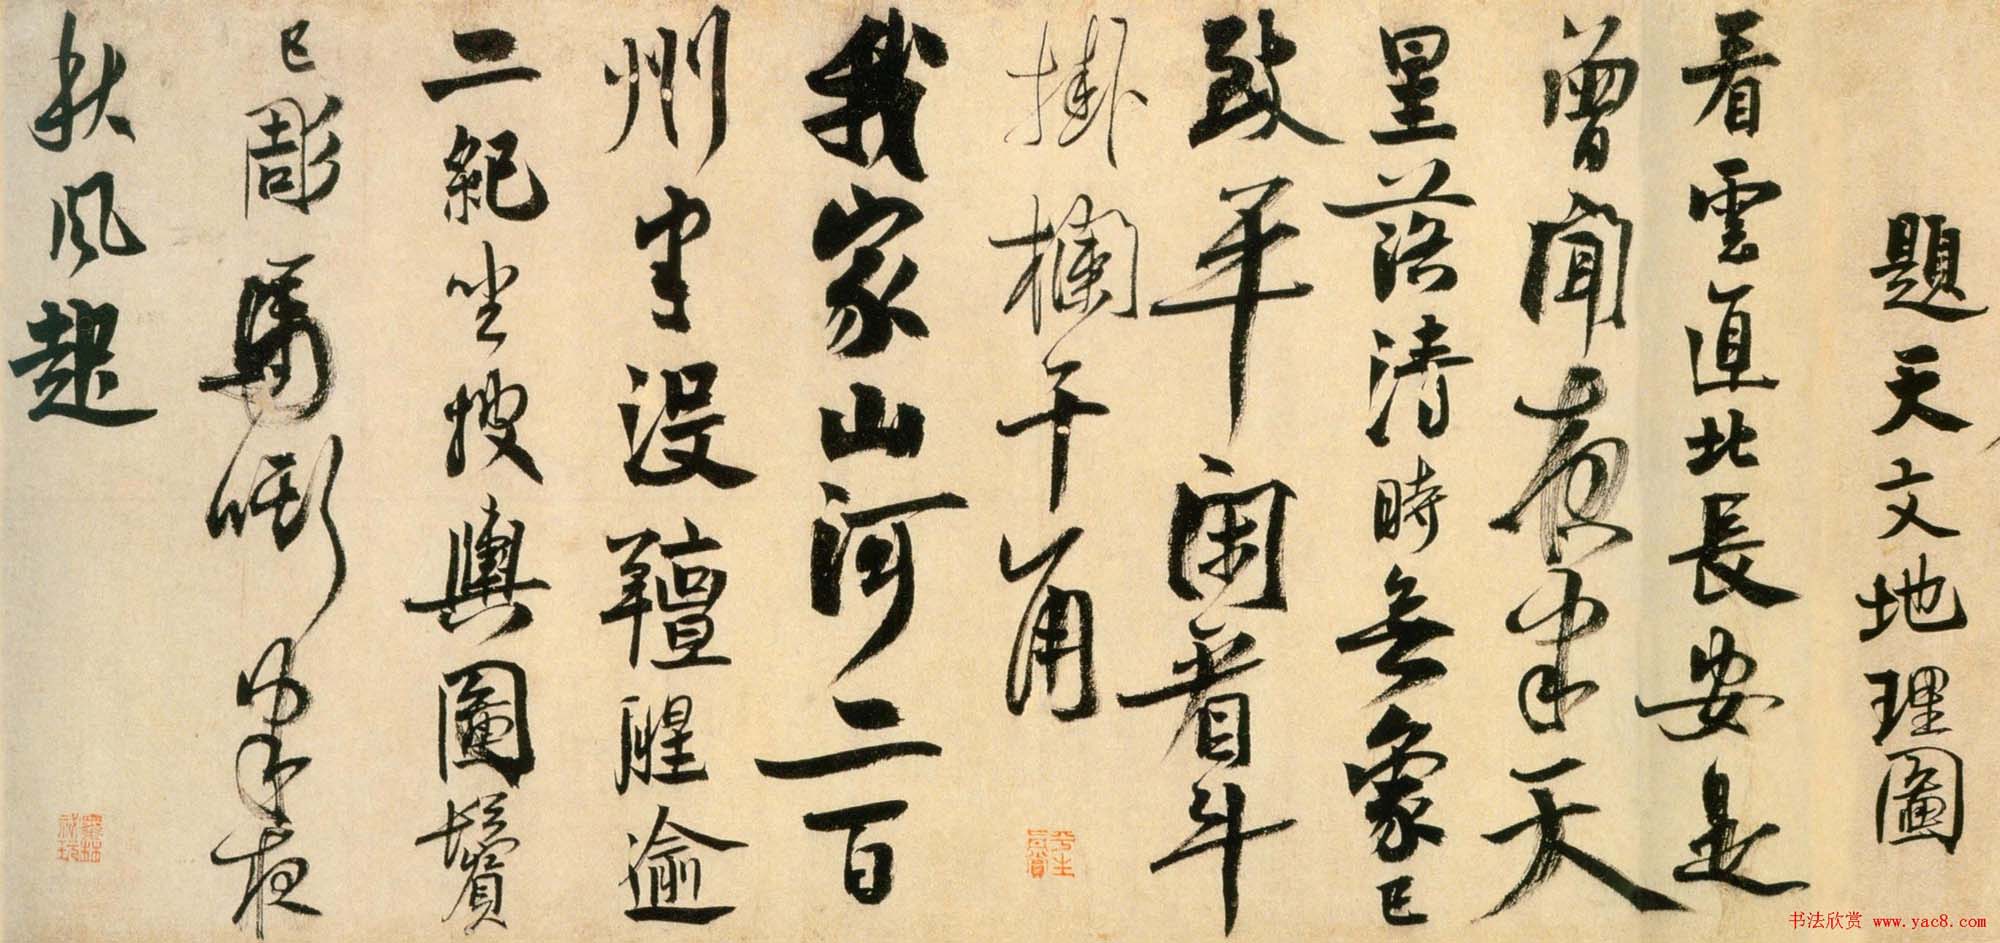 題天文地理圖
看雲直北長安是
曾聞夜半天
星落清時無象已
致平閑看斗
掛欄干角
我家山河二百
州半沒羶腥逾
二紀坐搜輿圖鬢
已彫馬衝半夜
秋風起
书法欣赏 www.yac8.com